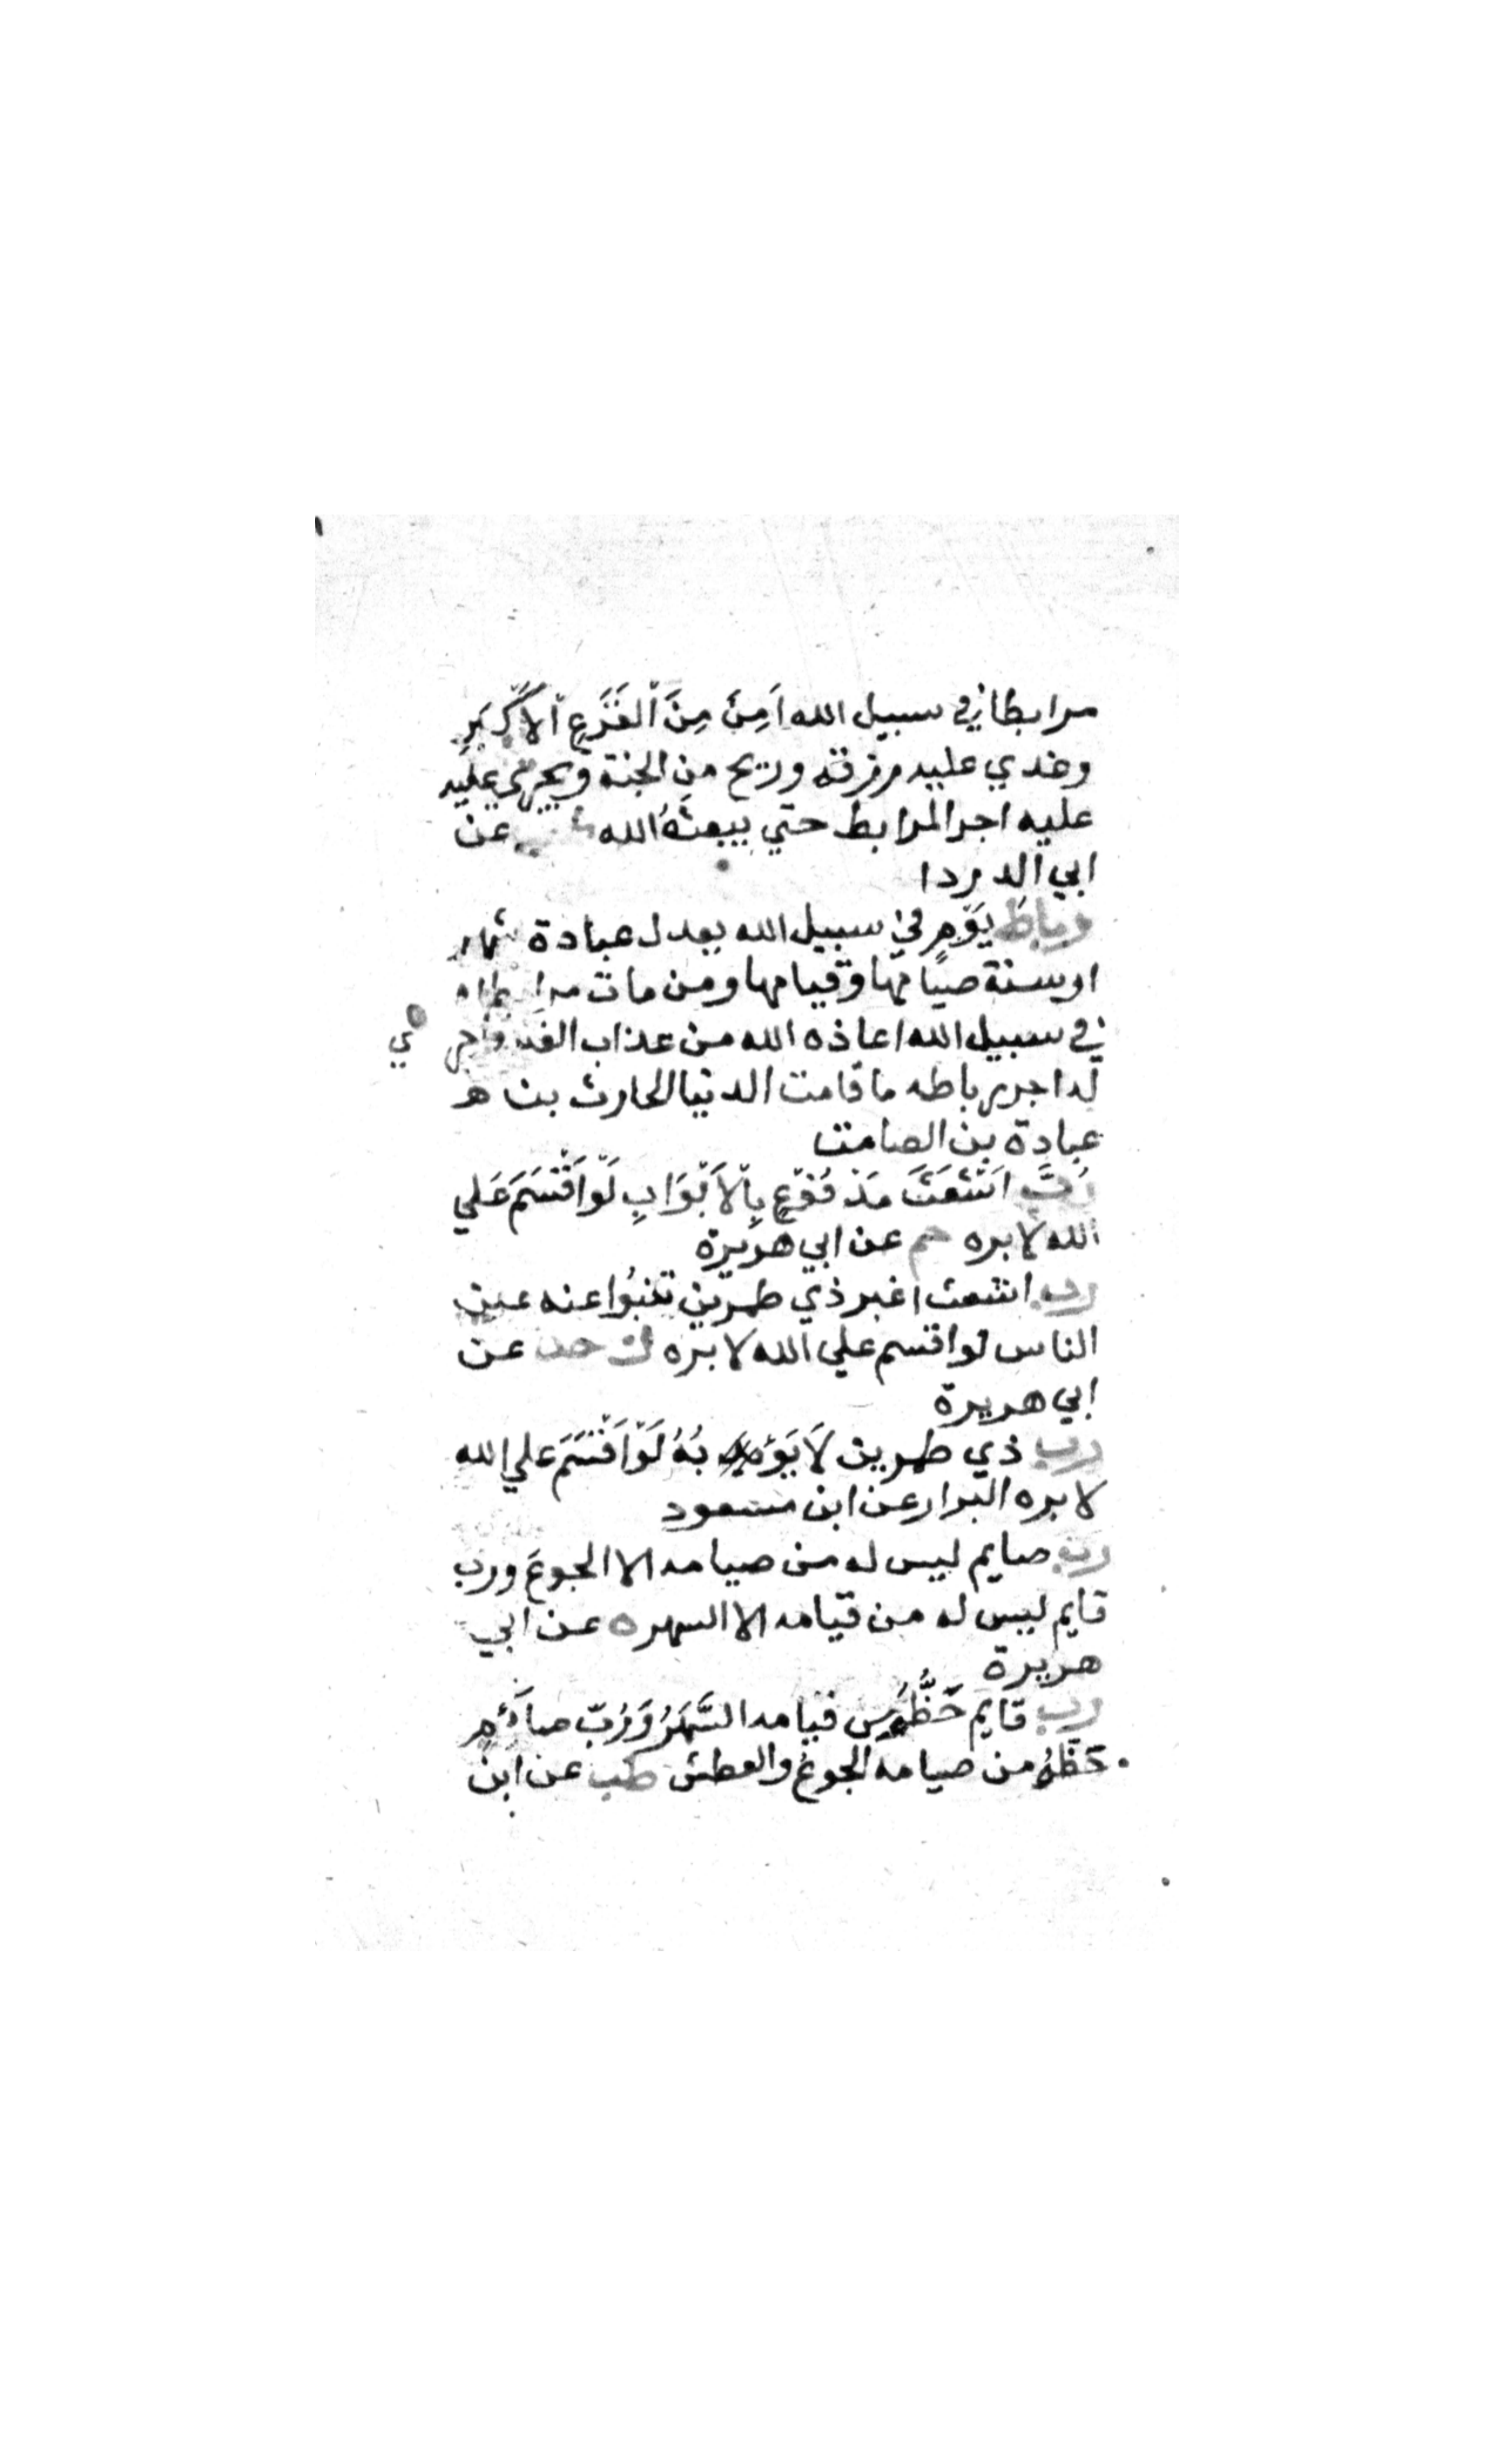 مرابطا في سبيل الله اَمِنَ مِنَ اْلفَزَعِ اْلاَكْبَرِ
وغدي عليه برزقه وريح من الجنة ويجري عليه
عليه اجر المرابط حتي يبعثَهُ الله عن
ابي الدردا
رباط يَوْمٍ في سبيل الله يعدل عبادة شهر
او سنة صيامها وقيامها ومن مات مرابطا
في سبيل الله اعاذه الله من عذاب القبر واجري
له اجر رباطه ما قامت الدنيا الحارث بن
عبادة بن الصامت
رُبَّ اَشْعَثَ مَدْفُوْعٍ بِاْلاَبْوَابِ لَوْاَقْسَمَ عَلي
الله لابره حم عن ابي هريرة
رب اشعث اغبر ذي طمرين تنبُوا عنه عين
الناس لو اقسم علي الله لابره ك حل عن
ابي هريرة
رب ذي طمرين لَا يَؤ بُهُ لَوْ اَقْسَمَ علي الله
لابره البزار عن ابن مسعود
رب صايم ليس له من صيامه الا الجوع ورب
قايم ليس له من قيامه الا السهر ه عن ابي
هريرة
رب قايم حَظُّهُ من قيامه السَّهَرُ وَرُبّ صائم
حَظّهُ من صيامه الجوع والعطش طب عن ابن